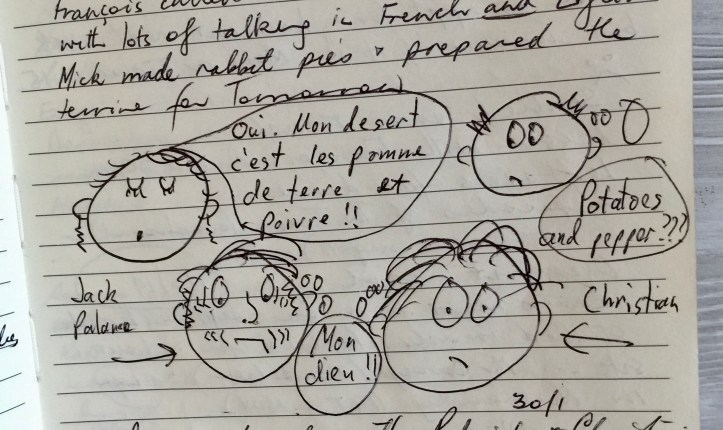 françois
with lots of talking in French and
Mick made rabbit pies & prepared the
terrine for Tomorrow
Oui. Mon desert
c'est les pomme
de terre et
Poivre !!
Potatoes
and pepper???
Jack
Palance
Mon
dieu !!
Christian
30/1